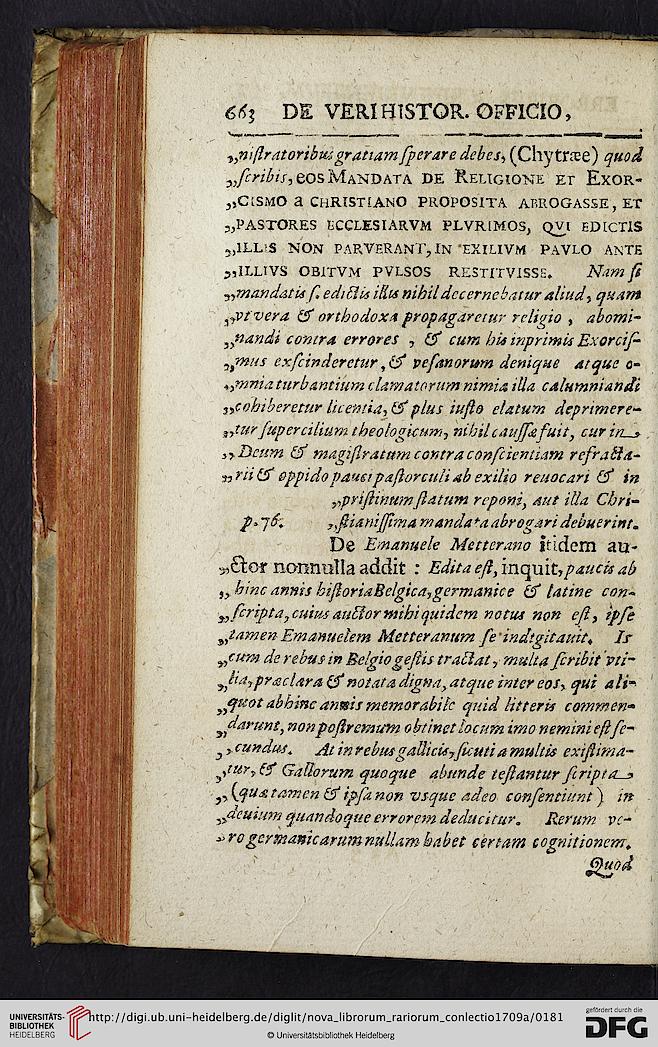 663 DE VERI HISTOR. OFFICIO,
„niſtratoribus gratiam ſperare debes, (Chytræe) quod
„ſcribis, eos MANDATA DE RELIGIONE ET EXOR-
„CISMO a CHRISTIANO PROPOSITA ABROGASSE, ET
„PASTORES ECCLESIARVM PLVRIMOS, QVI EDICTIS
„ILLIS NON PARVERANT, IN EXILIVM PAVLO ANTE
„ILLIVS OBITVM PVLSOS RESTITVISSE. Nam ſi
„mandatis ſ. edictis illis nihil decernebatur aliud, quam
„vt vera & orthodoxa propagaretur religio , abomi-
„nandi contra errores , & cum his inprimis Exorciſ-
„mus exſcinderetur, & veſanorum denique atque o-
„mnia turbantium clamatorum nimia illa calumniandi
„cohiberetur licentia, & plus iuſto elatum deprimere-
„tur ſupercilium theologicum, nihil cauſſæ fuit, cur in
„Deum & magiſtratum contra conſcientiam refracta-
„rii & oppido pauci paſtorculi ab exilio reuocari & in
„priſtinum ſtatum reponi, aut illa Chri-
p. 76. „ſtianiſſima mandata abrogari debuerint.
De Emanuele Metterano itidem au-
„ctor nonnulla addit : Edita eſt, inquit, paucis ab
„hinc annis hiſtoria Belgica, germanice & latine con-
„ſcripta, cuius auctor mihi quidem notus non eſt, ipſe
„tamen Emanuelem Metteranum ſe indigitauit. Is
„cum de rebus in Belgio geſtis tractat, multa ſcribit vti-
„lia, præclara & notata digna, atque inter eos, qui ali-
„quot abhinc annis memorabile quid litteris commen-
„darunt, non poſtremum obtinet locum imo nemini eſt ſe-
„cundus. At in rebus gallicis, ſicuti a multis exiſtima-
„tur, & Gallorum quoque abunde teſtantur ſcripta
„(quæ tamen & ipſa non vsque adeo conſentiunt) in
„deuium quandoque errorem deducitur. Rerum ve-
„ro germanicarum nullam habet certam cognitionem.
Quod
UNIVERSITÄTS-
BIBLIOTHEK
HEIDELBERG
http://digi.ub.uni-heidelberg.de/diglit/nova_librorum_rariorum_conlectio1709a/0181
© Universitätsbibliothek Heidelberg
gefördert durch die
DFG